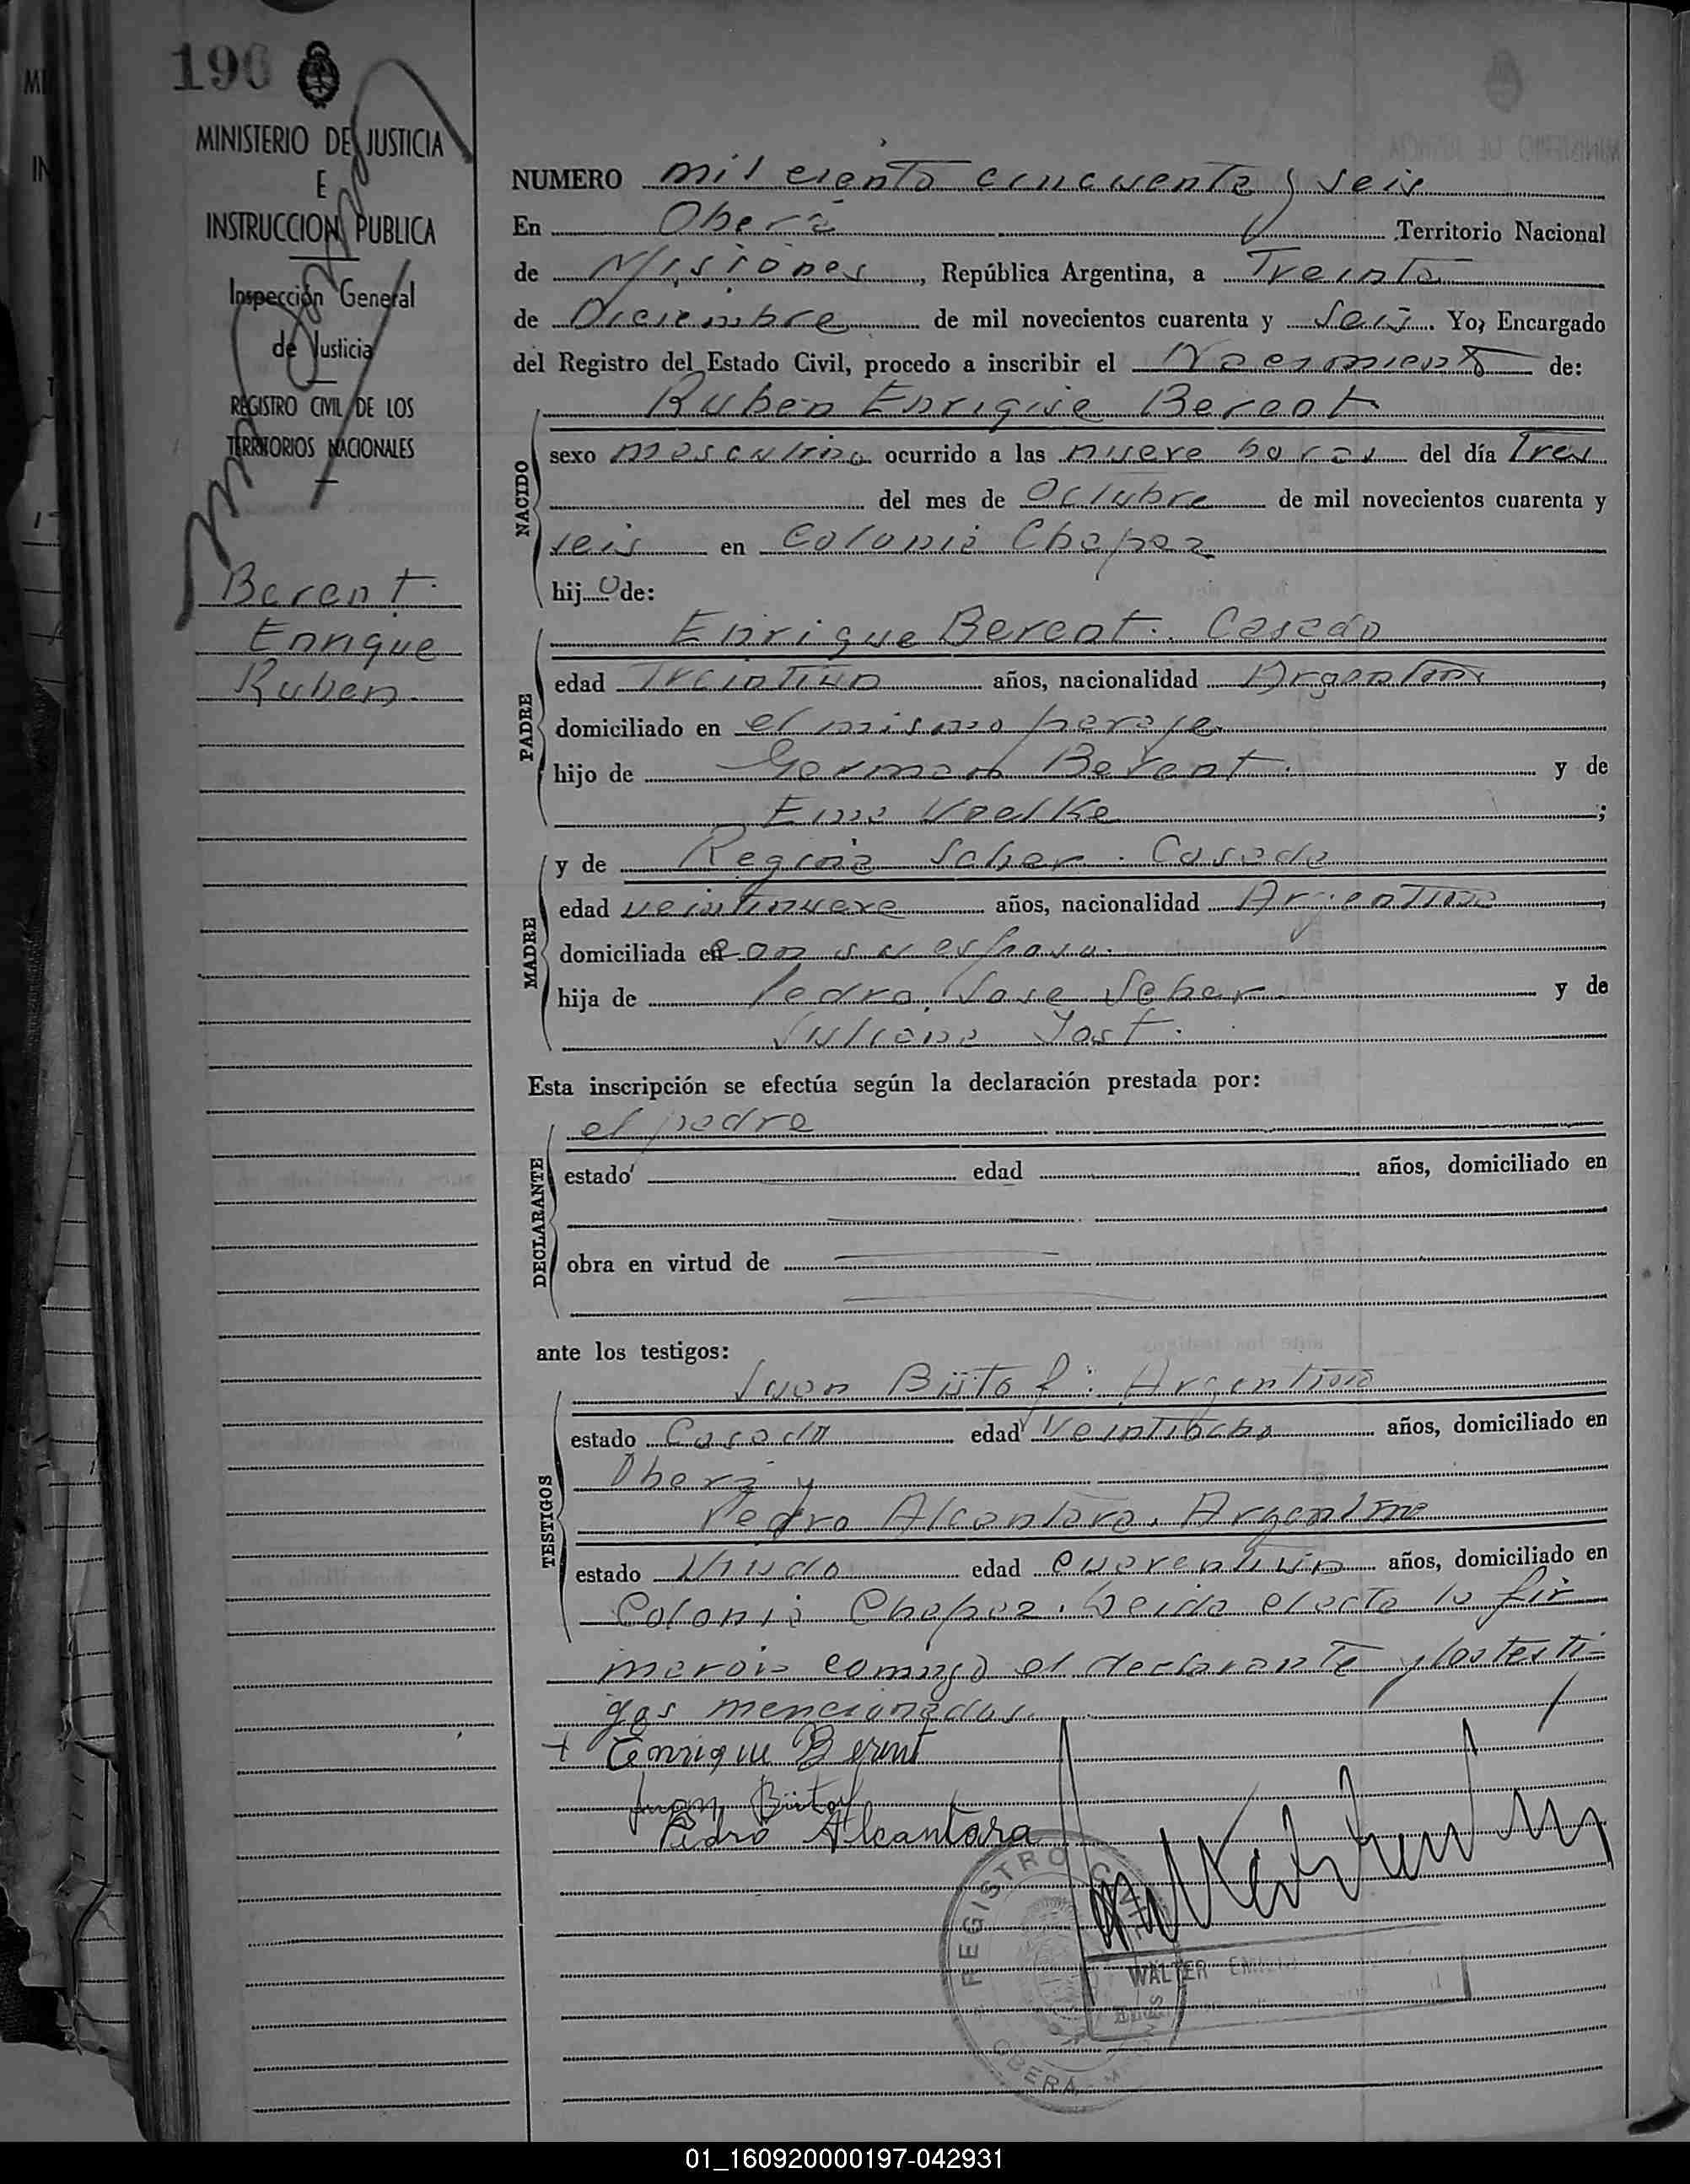 196
MINISTERIO DE JUSTICIA
E
INSTRUCCION PUBLICA
Inspección General
de Justicia
REGISTRO CIVIL DE LOS
TERRITORIOS NACIONALES
Berent.
Enrique
Ruben.
NUMERO mil ciento cincuenta y seis
En Oberá Territorio Nacional
de Misiones, República Argentina, a Treinta
de Diciembre de mil novecientos cuarenta y seis. Yo, Encargado
del Registro del Estado Civil, procedo a inscribir el Nacimiento de:
Ruben Enrique Berent
NACIDO
sexo masculino ocurrido a las nueve horas del día Tres
del mes de Octubre de mil novecientos cuarenta y
seis en Colonia Chapaz
hijo de:
PADRE
Enrique Berent. Casado
edad Treintiun años, nacionalidad Argentino,
domiciliado en el mismo paraje
hijo de German Berent. y de
Ema Voelke;
MADRE
y de Regina Saher. Casada
edad veintinueve años, nacionalidad Argentina,
domiciliada en con su esposo.
hija de Pedro José Seher y de
Juliana Jost.
Esta inscripción se efectúa según la declaración prestada por:
DECLARANTE
el padre
estado edad años, domiciliado en
obra en virtud de
ante los testigos:
TESTIGOS
Juan Bütof: Argentino
estado Casado edad Veintiocho años, domiciliado en
Oberá y
Pedro Alcantara. Argentino
estado Viudo edad cuarentiun años, domiciliado en
Colonia Chapaz. Leida el acta la fir
maron conmigo el declarante y los testi-
gos mencionados.
+ Enrique Berent
Juan Bütof
Pedro Alcantara
REGISTRO CIVIL
OBERA
WALTER EMILIO
01_160920000197-042931